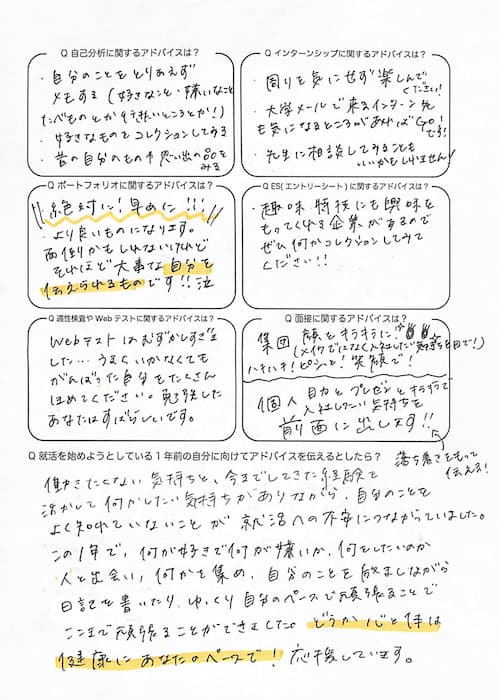 Q 自己分析に関するアドバイスは？
・自分のことをとりあえず
メモする(好きなこと・嫌いなこと
たべものとか行きたいところとか！)
・好きなものをコレクションしてみる
・昔の自分のものや思い出の品を
みる
Q インターンシップに関するアドバイスは？
・周りを気にせず楽しんで
ください！
・大学メールで来るインターン先
も気になるところがあればGO！
です！
・先生に相談してみることも
いいかもしれません！
Q ポートフォリオに関するアドバイスは？
絶対に！早めに！！！
より良いものになります。
面倒かもしれないけれど
それほど大事な自分を
伝えられるものです！！泣
Q ES(エントリーシート)に関するアドバイスは？
・趣味特技にも興味を
もってくれる企業があるので
ぜひ何かコレクションしてみて
ください！！
Q 適性検査や Web テストに関するアドバイスは？
Webテストはむずかしすぎま
した…うまくいかなくても
がんばった自分をたくさん
ほめてください。受験した
あなたはすばらしいです。
Q 面接に関するアドバイスは？
集団 顔をキラキラに！
(メイクではなく入社したい気持ちを目で！)
ハキハキ！ピシッと！笑顔で！
個人 自力とプレゼンとキラキラで
入社したい気持ちを
前面に出します！！
落ち着きをもって
伝える！
Q 就活を始めようとしている 1 年前の自分に向けてアドバイスを伝えるとしたら？
働きたくない気持ちと、今までしてきた経験を
活かして何かしたい気持ちがありながら、自分のことを
よく知れていないことが就活への不安につながっていました。
この1年で、何が好きで何が嫌いか、何をしたいのか
人と出会い、何かを集め、自分のことを励ましながら
日記を書いたり、ゆっくり自分のペースで頑張ることで
ここまで頑張ることができました。どうか心と体は
健康にあなたのペースで！応援しています。